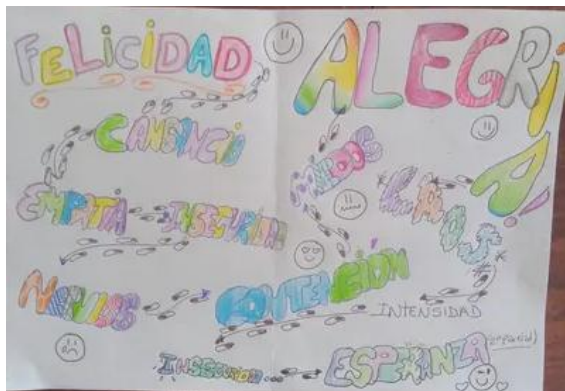 FELICIDAD
ALEGRIA!
CANSANCIO
MIEDOS
EMPATIA
INSEGURIDAD
CAOS
NERVIOS
CONTENCIÓN
INTENSIDAD
INSEGURIDAD...
ESPERANZA